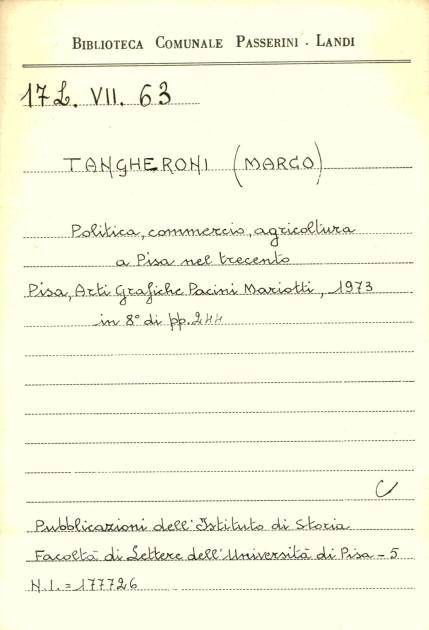 BIBLIOTECA COMUNALE PASSERINI - LANDI
17L. VII. 63
TANGHERONI (MARCO)
Politica, commercio, agricoltura
a Pisa nel trecento
Pisa, Arti Grafiche Pacini Mariotti, 1973
in 8° di pp. 244
C
Pubblicazioni dell'Istituto di Storia
Facoltà di Lettere dell'Università di Pisa - 5
N.I. = 177726